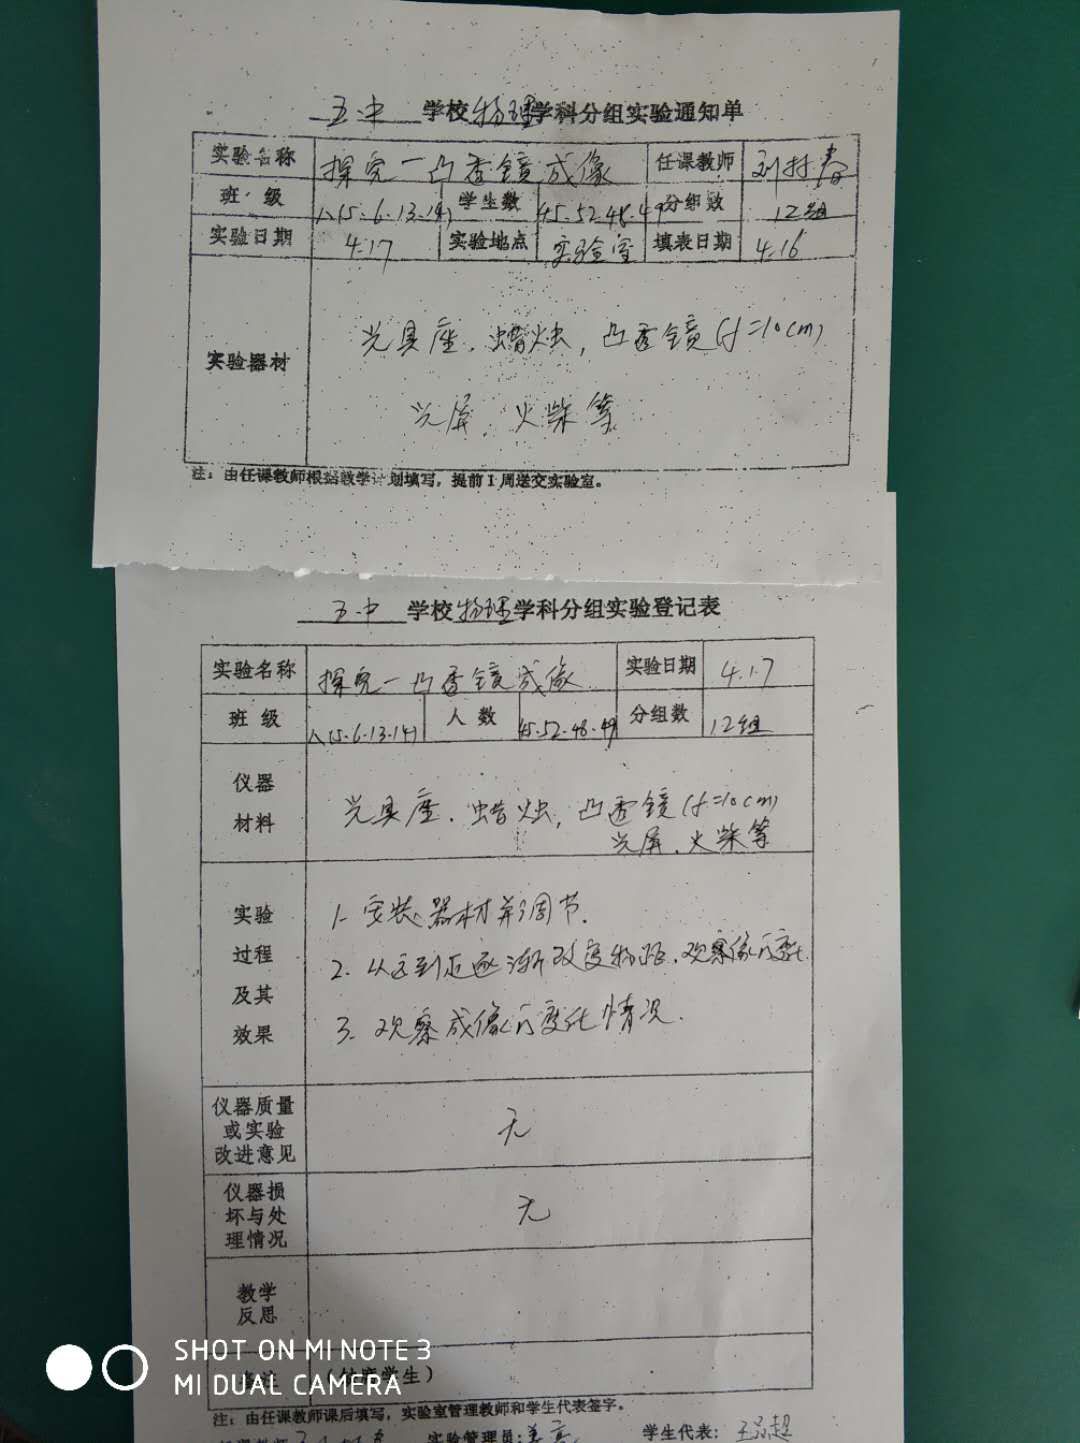 五中 学校物理学科分组实验通知单
实验名称 探究一凸透镜成像 任课教师 刘村春
班级 八(5.6.13.14) 学生数 45.52.48.49 分组数 12组
实验日期 4.17 实验地点 实验室 填表日期 4.16
实验器材
光具座.蜡烛,凸透镜(f=10cm)
光屏.火柴等
注：由任课教师根据教学计划填写，提前1周送交实验室。
五中 学校物理学科分组实验登记表
实验名称 探究一凸透镜成像 实验日期 4.17
班级 八(5.6.13.14) 人数 45.52.48.49 分组数 12组
仪器
材料
光具座.蜡烛,凸透镜(f=10cm)
光屏.火柴等
实验
过程
及其
效果
1.安装器材并调节.
2.从远到近逐渐改变物距.观察像的变化.
3.观察成像的变化情况.
仪器质量
或实验
改进意见
无
仪器损
坏与处
理情况
无
教学
反思
SHOT ON MI NOTE 3
MI DUAL CAMERA
学生)
注：由任课教师课后填写，实验室管理教师和学生代表签字。
实验管理员: 学生代表: